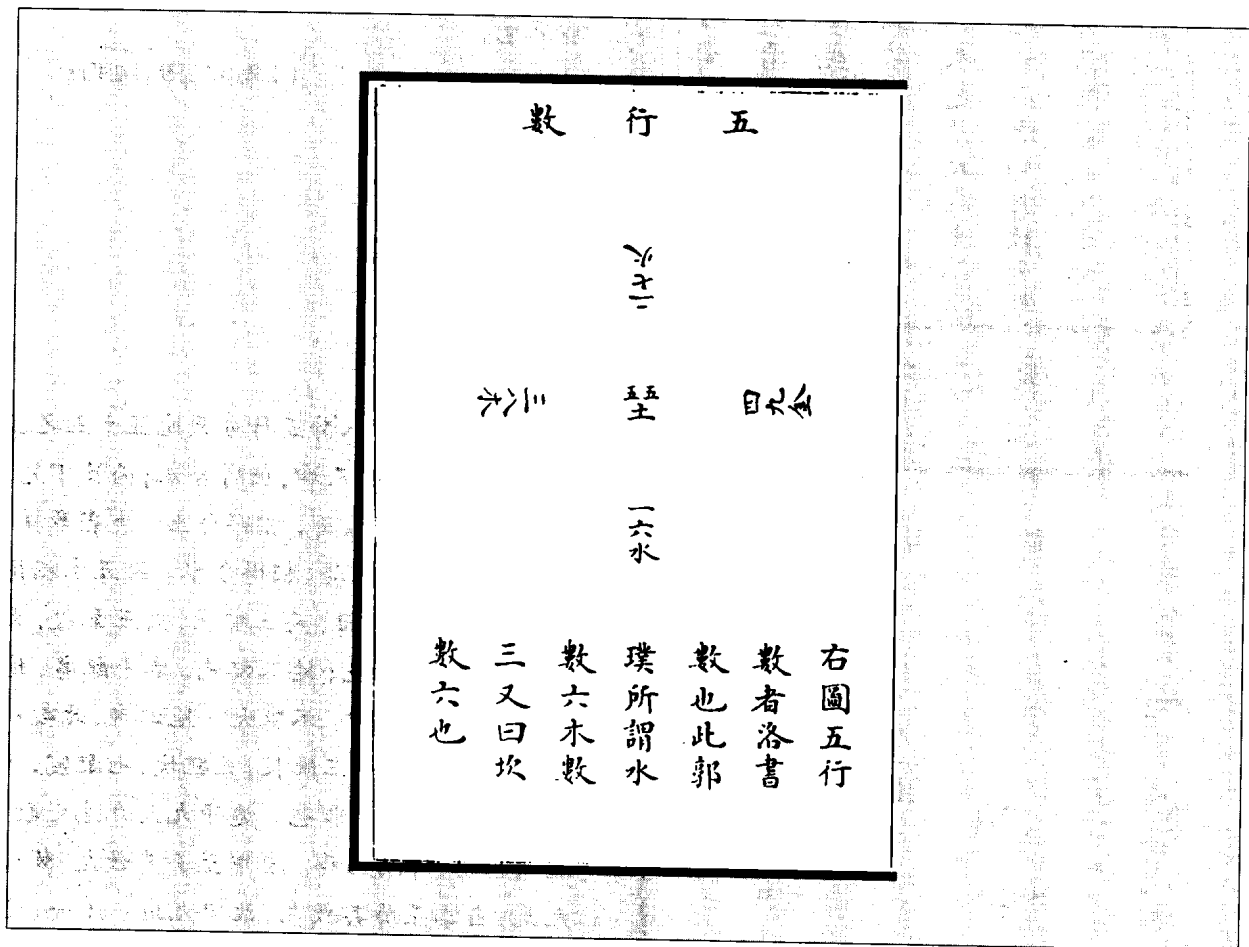 五行數
二七火
四九金
五五土
三八木
一六水
右圖五行
數者洛書
數也此郭
璞所謂水
數六木數
三又曰坎
數六也